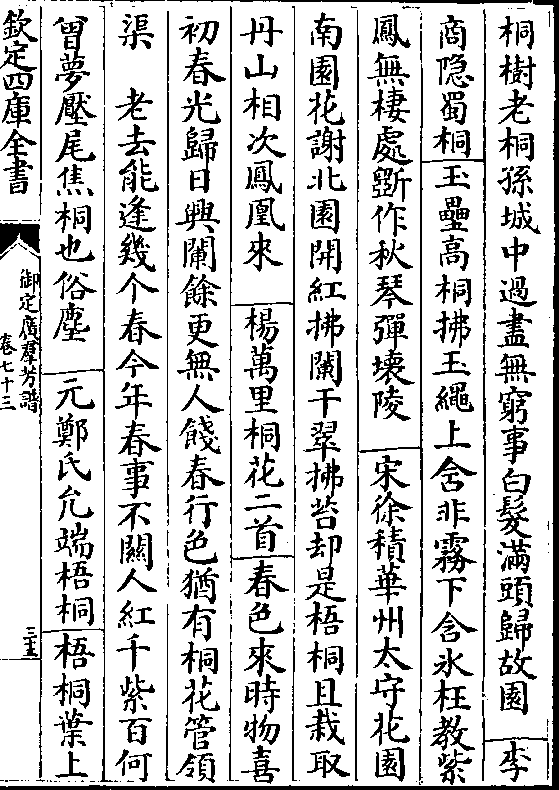 桐樹老桐孫城中過盡無窮事白髮滿頭歸故園　李
商隐蜀桐　玉壘高桐拂玉繩上含非霧下含氷枉教紫
鳳無棲處斵作秋琴彈壊陵　宋徐積華州太守花園
南園花謝北園開紅拂闌干翠拂苔却是梧桐且栽取
丹山相次鳳凰來　楊萬里桐花二首　春色來時物喜
初春光歸日興闌餘更無人餞春行色猶有桐花管領
渠　老去能逢幾个春今年春事不關人紅千紫百何
曾夢壓尾焦桐也俗塵　元鄭氏允端梧桐　梧桐葉上
欽定四庫全書
御定廣羣芳譜
卷七十三
三五